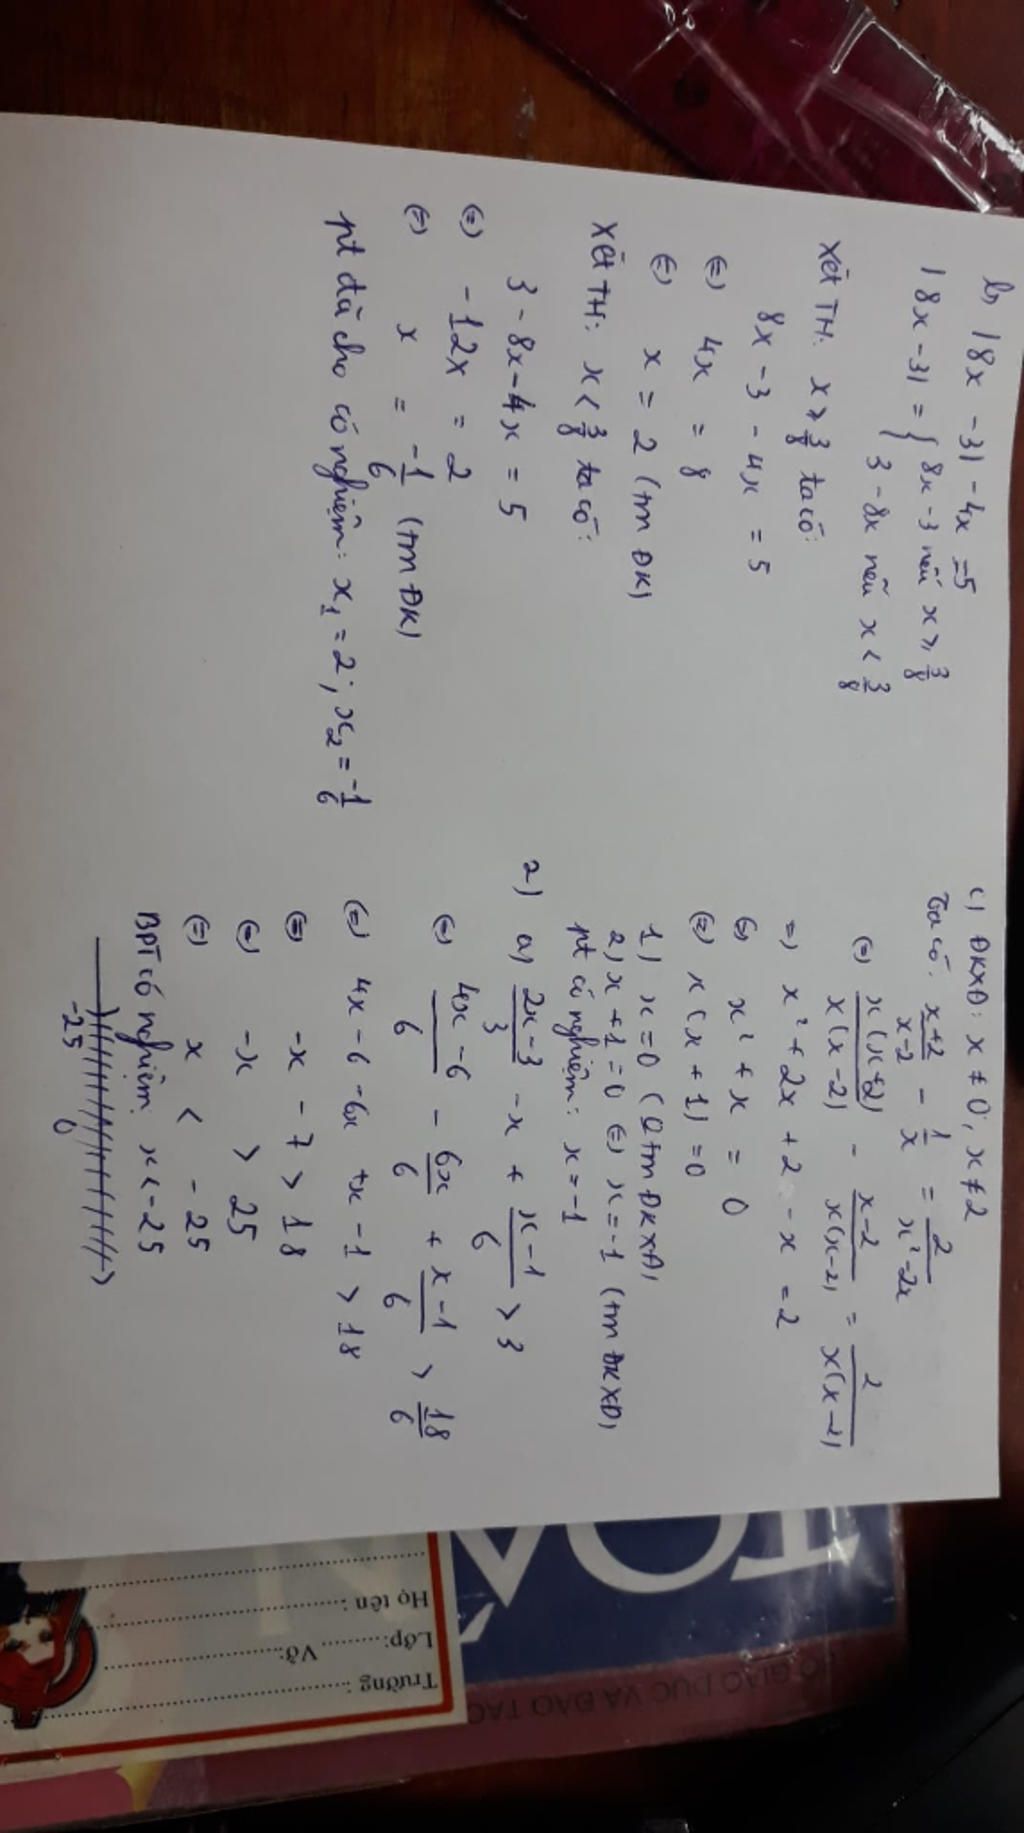 b, |8x - 3| - 4x = 5
|8x - 3| = { 8x - 3 nếu x ≥ 3/8
3 - 8x nếu x < 3/8
Xét TH: x ≥ 3/8 ta có:
8x - 3 - 4x = 5
(=) 4x = 8
(=) x = 2 (tm ĐK)
Xét TH: x < 3/8 ta có:
3 - 8x - 4x = 5
(=) -12x = 2
(=) x = -1/6 (tm ĐK)
pt đã cho có nghiệm: x₁ = 2; x₂ = -1/6
c) ĐKXĐ: x ≠ 0; x ≠ 2
Ta có: x+2/x-2 - 1/x = 2/x²-2x
(=) x(x+2)/x(x-2) - x-2/x(x-2) = 2/x(x-2)
=) x² + 2x + 2 - x = 2
(=) x² + x = 0
(=) x(x+1) = 0
1) x = 0 (0 tm ĐKXĐ)
2) x + 1 = 0 (=) x = -1 (tm ĐKXĐ)
pt có nghiệm: x = -1
2) a) 2x-3/3 - x + x-1/6 > 3
(=) 4x-6/6 - 6x/6 + x-1/6 > 18/6
(=) 4x - 6 - 6x + x - 1 > 18
(=) -x - 7 > 18
(=) -x > 25
(=) x < -25
BPT có nghiệm: x < -25
-25 0
TOÁN
BỘ GIÁO DỤC VÀ ĐÀO TẠO
Trường :
Lớp: Vở:
Họ tên :